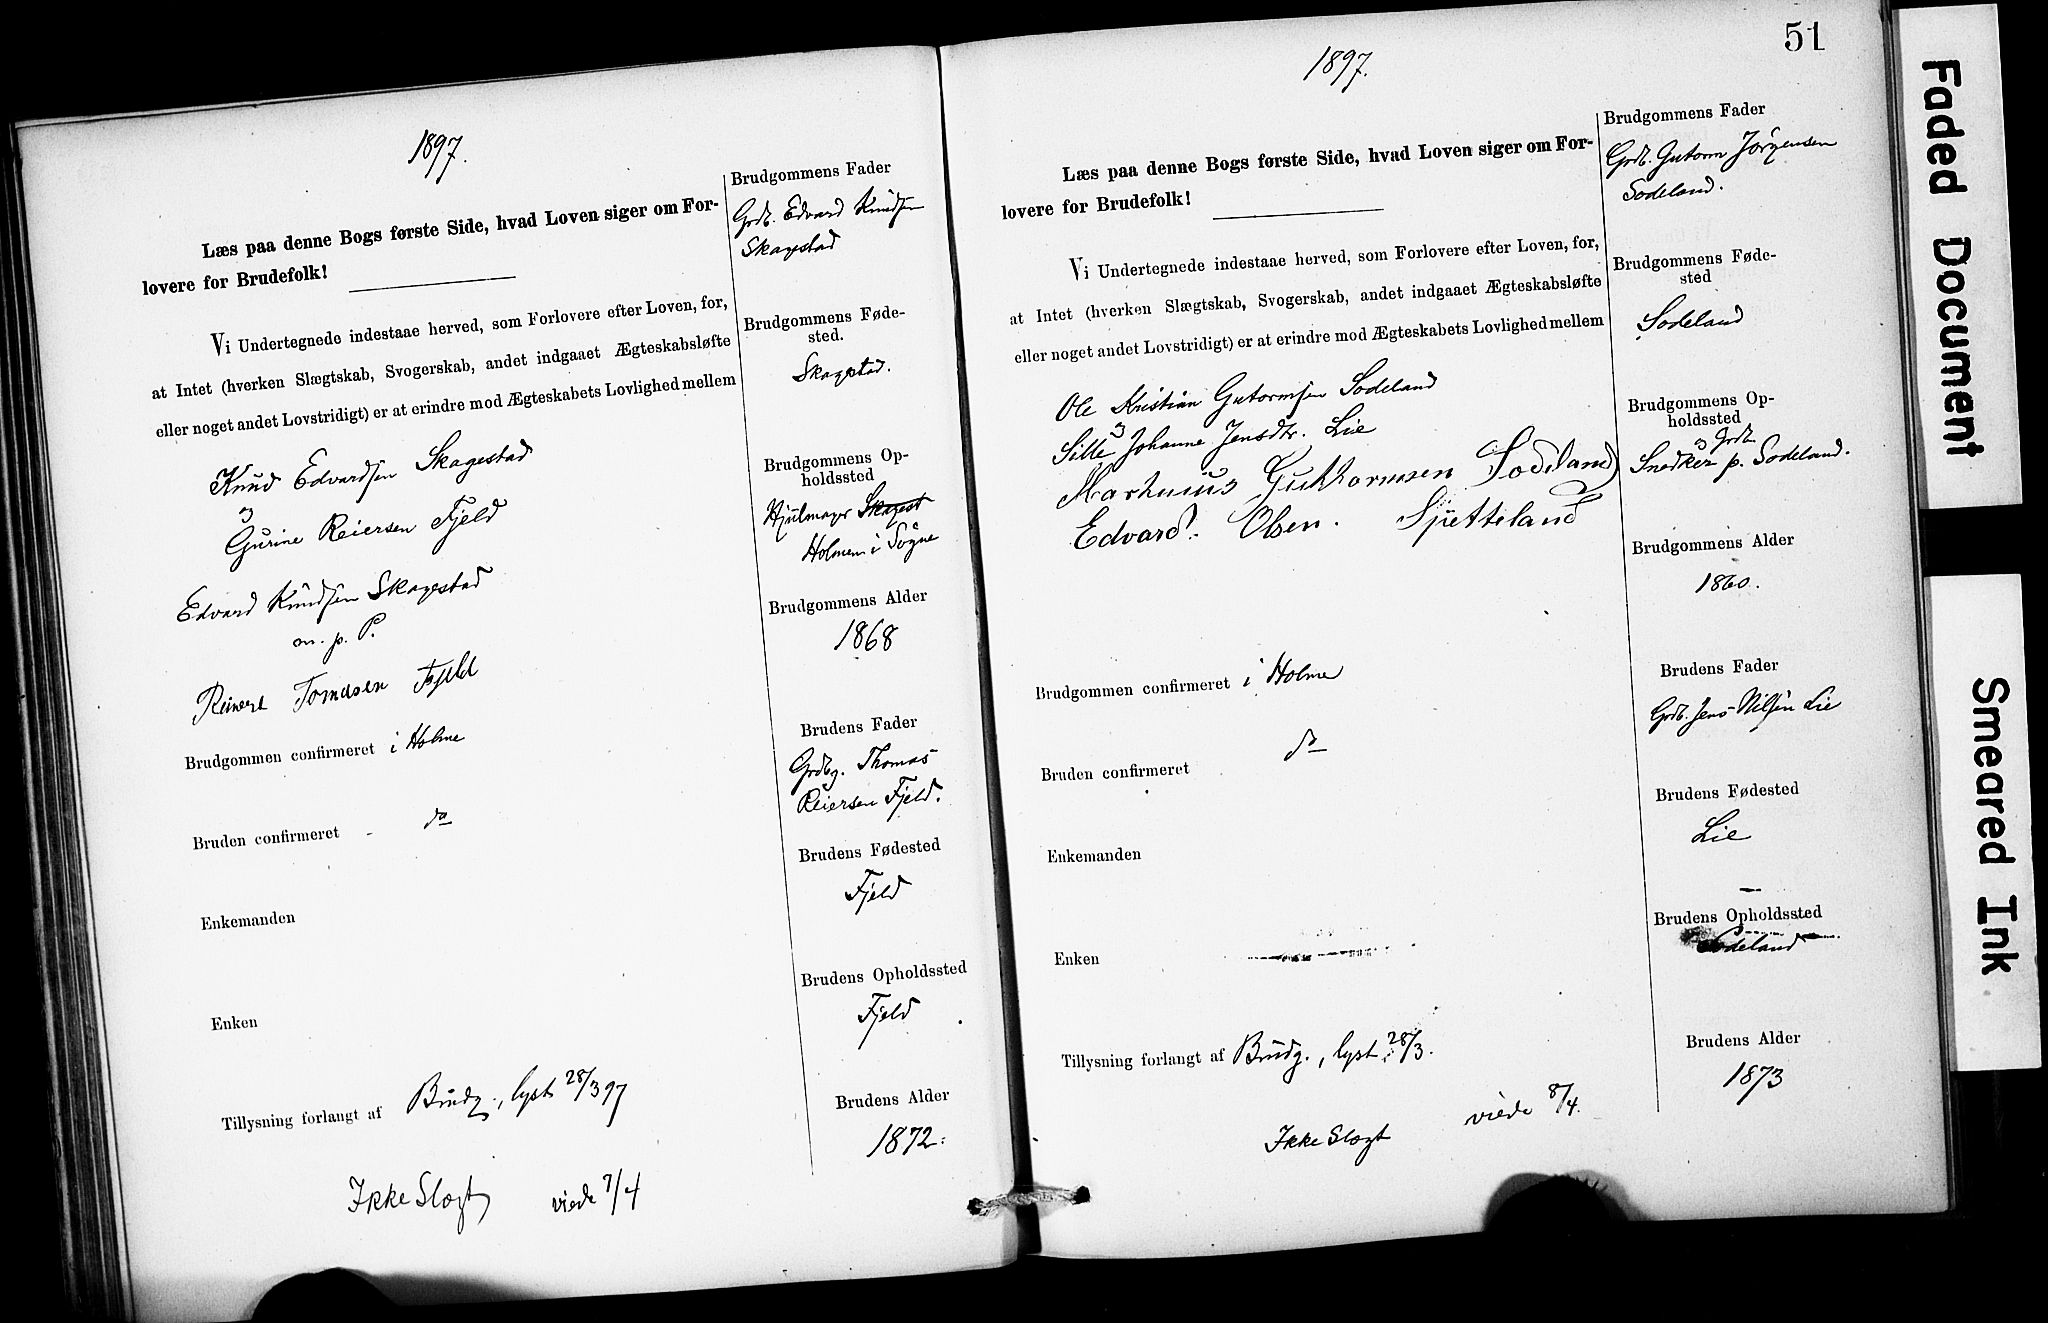 1897.
Læs paa denne Bogs første Side, hvad Loven siger om For-
lovere for Brudefolk!
Vi Undertegnede indestaae herved, som Forlovere efter Loven, for,
at Intet (hverken Slægtskab, Svogerskab, andet indgaaet Ægteskabsløfte
eller noget andet Lovstridigt) er at erindre mod Ægteskabets Lovlighed mellem
Knud Edvardsen Skagestad
og
Gurine Reiersen Fjeld
Edvard Knudsen Skagestad
m. p. P.
Reinert Tomasen Fjeld
Brudgommen confirmeret i Holme
Bruden confirmeret - do
Enkemanden
Enken
Tillysning forlangt af Brudg., lyst 28/3 97
Ikke Slægt viede 7/4
Brudgommens Fader
Grdb. Edvard Knudsen
Skagestad
Brudgommens Føde-
sted.
Skagestad.
Brudgommens Op-
holdssted
Hjulmager Skagest
Holmen i Søgne
Brudgommens Alder
1868
Brudens Fader
Grdbg. Thomas
Reiersen Fjeld.
Brudens Fødested
Fjeld
Brudens Opholdssted
Fjeld
Brudens Alder
1872.
51
1897.
Læs paa denne Bogs første Side, hvad Loven siger om For-
lovere for Brudefolk!
Vi Undertegnede indestaae herved, som Forlovere efter Loven, for,
at Intet (hverken Slægtskab, Svogerskab, andet indgaaet Ægteskabsløfte
eller noget andet Lovstridigt) er at erindre mod Ægteskabets Lovlighed mellem
Ole Kristian Gutormsen Sodeland
og
Sille Johanne Jensdtr. Lie
Marhinius Guttormsen Sodeland
Edvard. Olsen. Sjutteland
Brudgommen confirmeret i Holme
Bruden confirmeret do
Enkemanden
Enken
Tillysning forlangt af Brudg., lyst 28/3.
Ikke Slægt viede 8/4.
Brudgommens Fader
Grdb. Gutorm Jørgensen
Sodeland.
Brudgommens Føde-
sted
Sodeland
Brudgommens Op-
holdssted
og Grdb.
Snedker p. Sodeland.
Brudgommens Alder
1860.
Brudens Fader
Grdb. Jens Nilsen Lie
Brudens Fødested
Lie
Brudens Opholdssted
Sodeland
Brudens Alder
1873
Faded Document
Smeared Ink